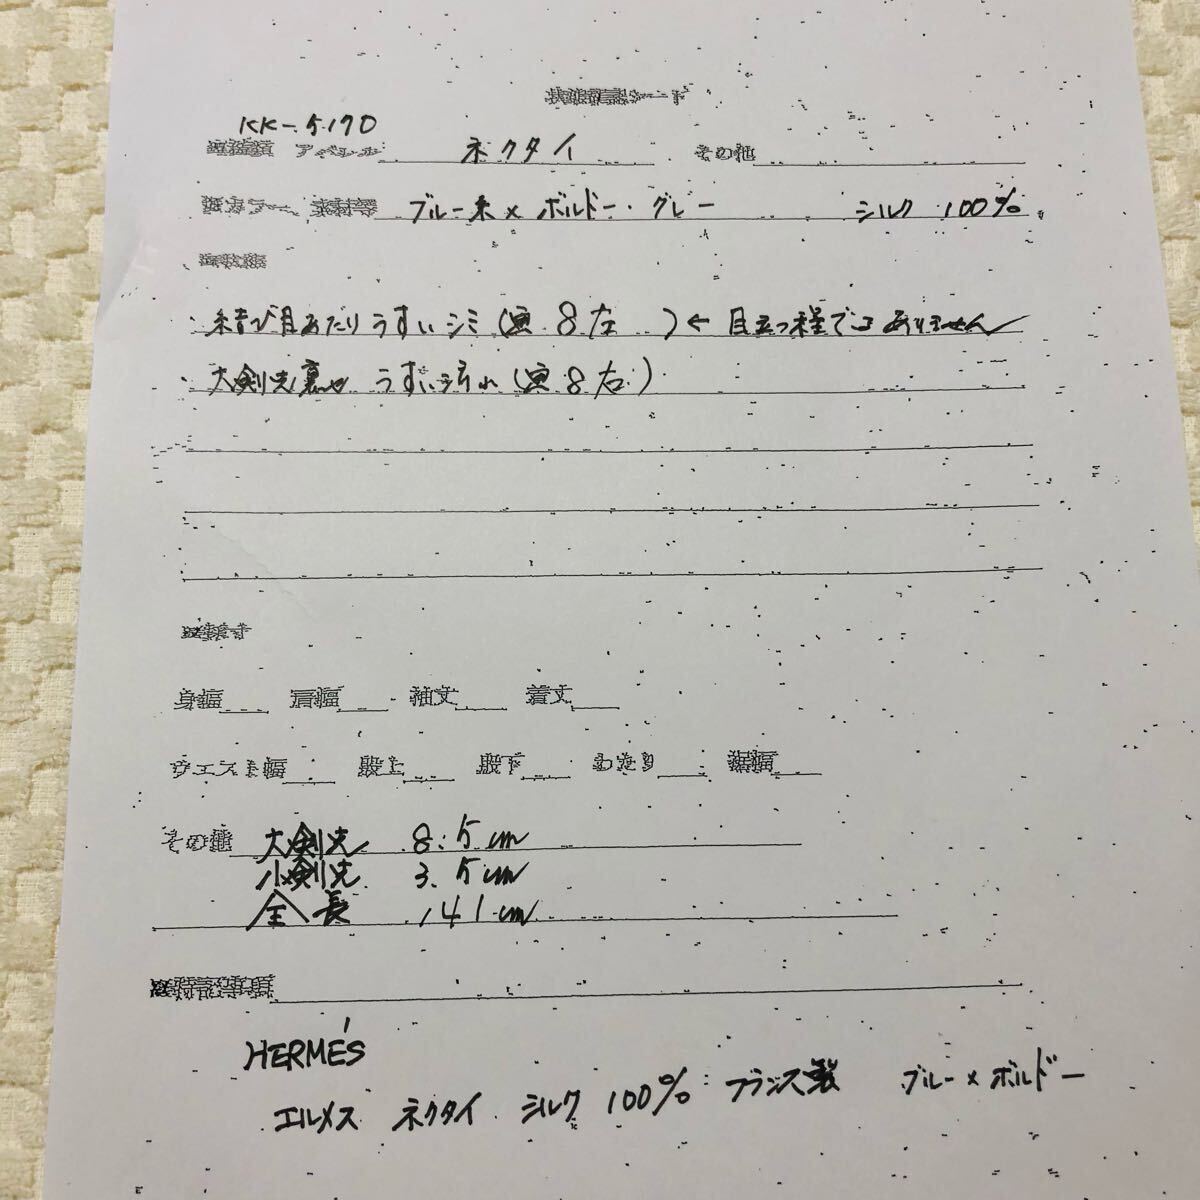 状態確認シート
KK-5170
アパレル ネクタイ その他
カラー 素材等 ブルー系×ボルドー・グレー シルク 100%
結び目あたりうすいシミ(画8左)← 目立つ程ではありません
大剣先裏や うすい汚れ(画8右)
身幅 肩幅 袖丈 着丈
ウエスト幅 股上 股下 わたり 裾幅
その他 大剣先 8.5cm
小剣先 3.5cm
全長 141cm
※特記事項
HERMÉS
エルメス ネクタイ シルク 100% フランス製 ブルー×ボルドー